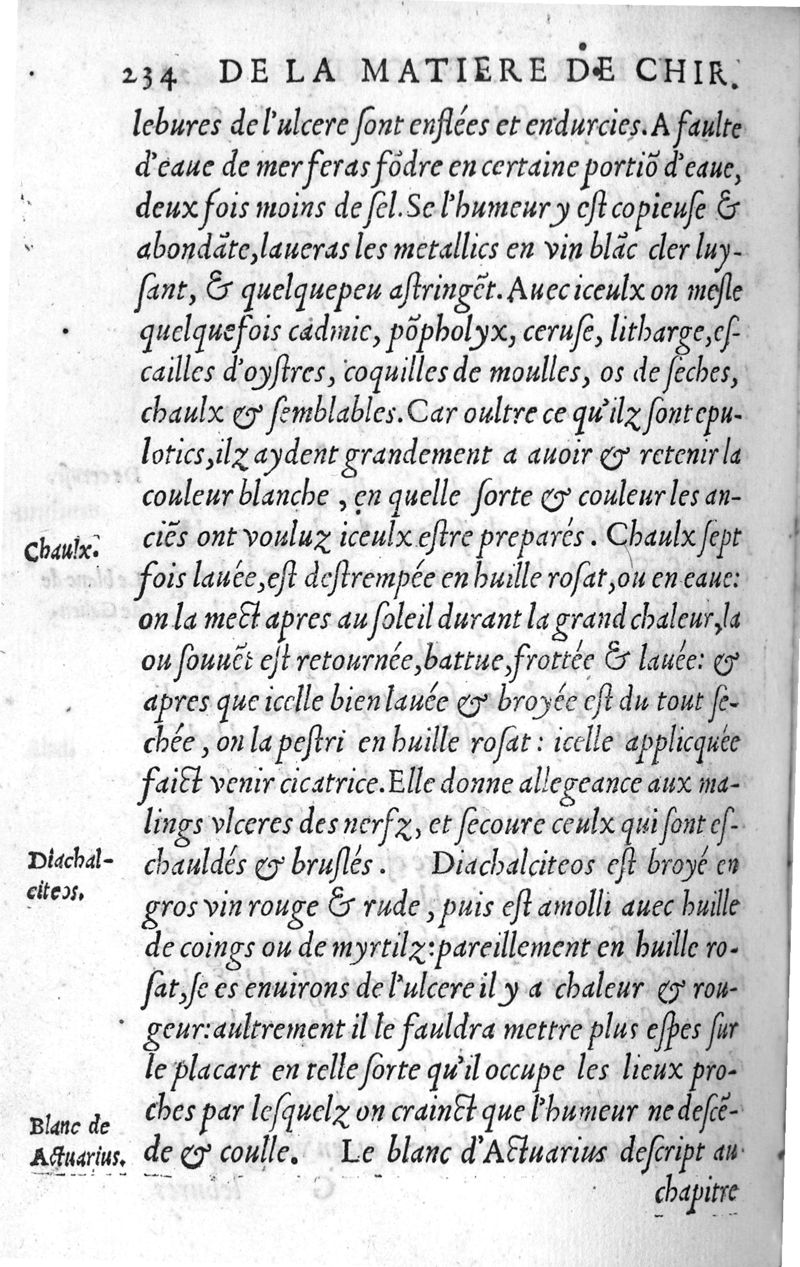 234 DE LA MATIERE DE CHIR.
lebures de l'ulcere ſont enflées et endurcies. A faulte
d'eaue de mer feras fõdre en certaine portiõ d'eaue,
deux fois moins de ſel. Se l'humeur y eſt copieuſe &
abondãte, laueras les metallics en vin blãc cler luy-
ſant, & quelque peu aſtringẽt. Auec iceulx on meſle
quelquefois cadmie, põpholyx, ceruſe, litharge, eſ-
cailles d'oyſtres, coquilles de moulles, os de ſeches,
chaulx & ſemblables. Car oultre ce qu'ilz ſont epu-
lotics, ilz aydent grandement a auoir & retenir la
couleur blanche , en quelle ſorte & couleur les an-
ciẽs ont vouluz iceulx eſtre preparés . Chaulx ſept
Chaulx.
fois lauée, eſt deſtrempée en huille roſat, ou en eaue:
on la mect apres au ſoleil durant la grand chaleur, la
ou ſouuẽt eſt retournée, battue, frottée & lauée: &
apres que icelle bien lauée & broyée eſt du tout ſe-
chée , on la peſtri en huille roſat : icelle applicquée
faict venir cicatrice. Elle donne allegeance aux ma-
lings vlceres des nerfz, et ſecoure ceulx qui ſont eſ-
Diachal-
citeos.
chauldés & bruſlés . Diachalciteos eſt broyé en
gros vin rouge & rude , puis eſt amolli auec huille
de coings ou de myrtilz: pareillement en huille ro-
ſat, ſe es enuirons de l'ulcere il y a chaleur & rou-
geur: aultrement il le fauldra mettre plus eſpes ſur
le placart en telle ſorte qu'il occupe les lieux pro-
ches par leſquelz on crainct que l'humeur ne deſcẽ-
Blanc de
Actuarius.
de & coulle. Le blanc d'Actuarius deſcript au
chapitre